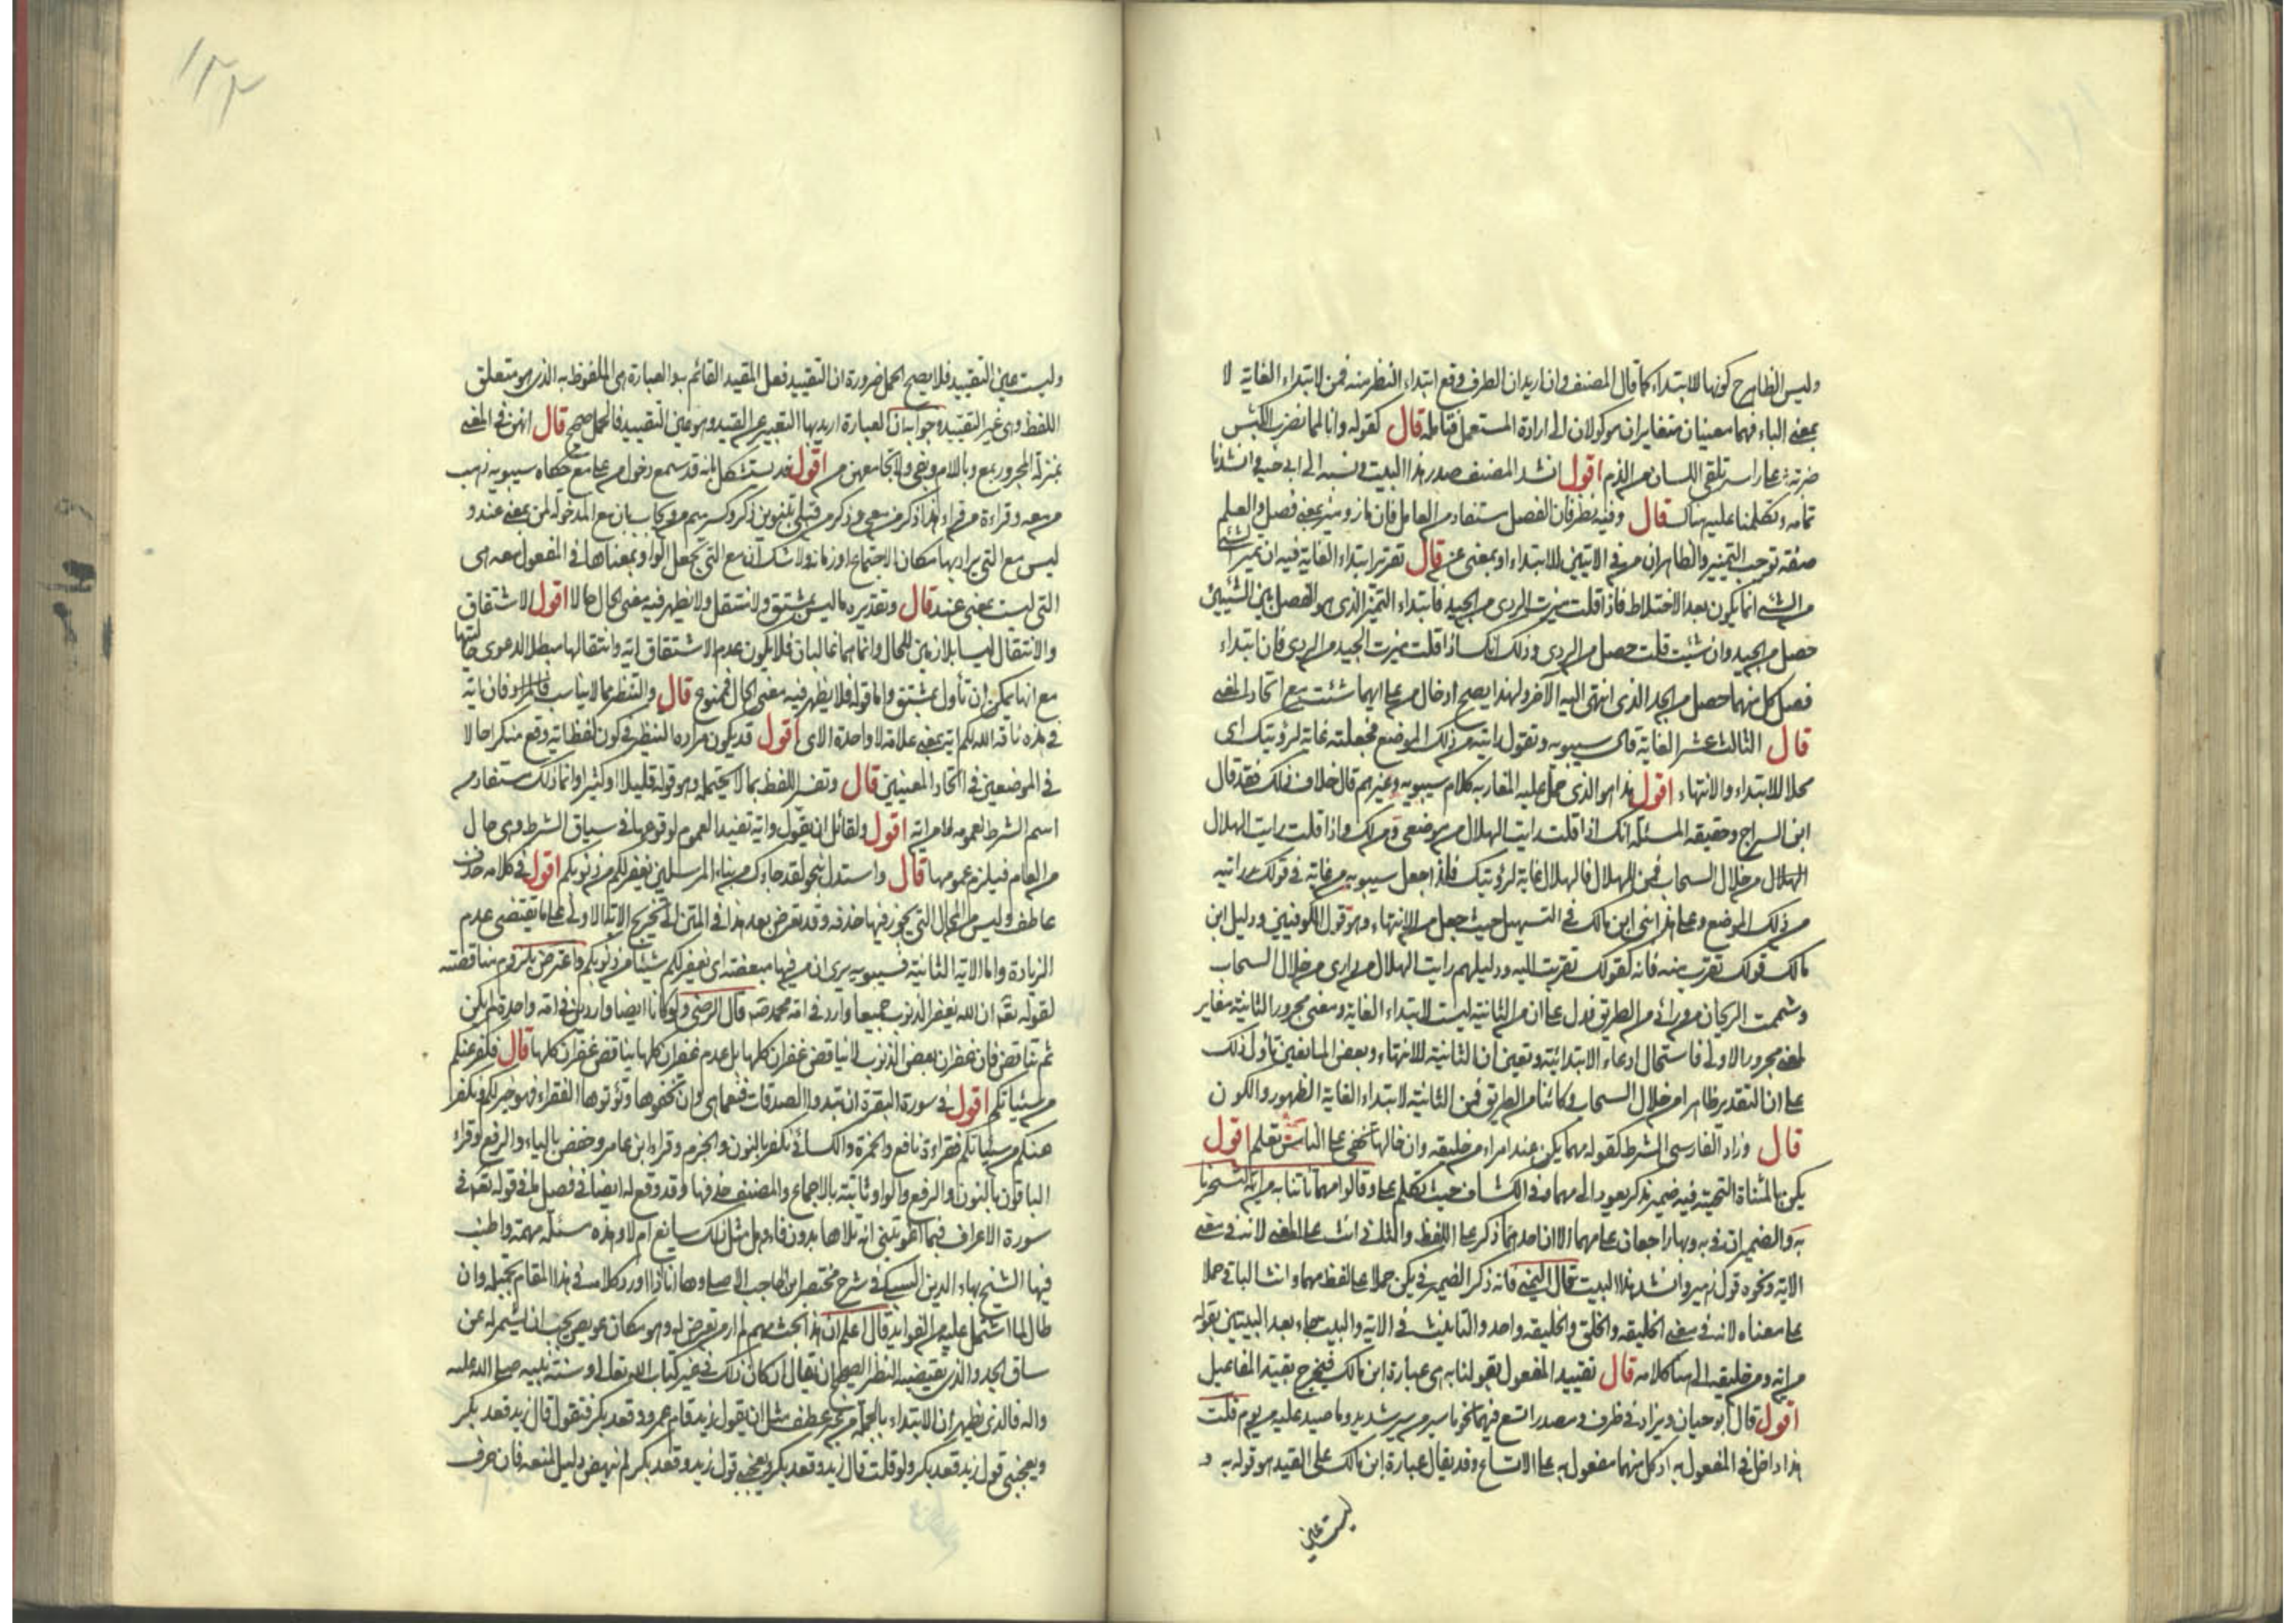 وليس الظاهر كونها للابتداء كما قال المصنف وان اريد ان الطرف وقع ابتداء النظر منه فمن لابتداء الغاية لا
بمعنى الباء فهما معنيان متغايران موكولان الى ارادة المستعمل فتامله قال كقوله وانا لمما نضرب الكبش
ضربة على راسه تلقي اللسان من الفم اقول انشد المصنف صدر هذا البيت ونسبه الى ابي حية وانشدنا
تمامه وتكلمنا عليه هناك قال وفيه نظر فان الفصل مستفاد من العامل فان ماز وميز بمعنى فصل والعلم
صفة توجب التمييز والظاهر ان من في الايتين للابتداء او بمعنى عن قال تقرير ابتداء الغاية فيه ان تمييز الشئ
من الشئ انما يكون بعد الاختلاط فاذا قلت ميزت الردى من الجيد فابتداء التميز الذي هو الفصل بين الشيئين
حصل من الجيد وان شئت قلت حصل من الردى وذلك انك اذا قلت ميزت الجيد من الردى فان ابتداء
فصل كل منهما حصل من الحد الذي انتهى اليه الآخر ولهذا يصح ادخال من على ايهما شئت مع اتحاد المعنى
قال الثالث عشر الغاية قال سيبويه وتقول رايته من ذلك الموضع فجعلته غاية لرؤيتك اى
محلا للابتداء والانتهاء اقول هذا هو الذي حمل عليه المغاربة كلام سيبويه وغيرهم قال خلاف ذلك فقد قال
ابن السراج وحقيقة المسئلة انك اذا قلت رايت الهلال من موضعى فمن لك واذا قلت رايت الهلال
الهلال من خلال السحاب فمن للهلال فالهلال غاية لرؤيتك فلذا جعل سيبويه من غاية في قولك رايته
من ذلك الموضع وعلى هذا بنى ابن مالك في التسهيل حيث جعل من للانتهاء وهو قول الكوفيين ودليل ابن
مالك قولك تقربت منه فانه كقولك تقربت اليه ودليلهم رايت الهلال من دارى من خلال السحاب
وشممت الريحان من دارى من الطريق فدل على ان من الثانية ليست لابتداء الغاية ومعنى مجرور الثانية مغاير
لمعنى مجرور الاولى فاستحال ادعاء الابتدائية وتعين ان الثانية للانتهاء وبعض المانعين تأول ذلك
على ان التقدير ظاهرا من خلال السحاب وكائنا من الطريق فمن الثانية لابتداء الغاية الظهور والكون
قال وزاد الفارسي الشرط كقوله مهما يكن عند امرء من خليقة وان خالها تخفى على الناس تعلم اقول
يكن بالمثناة التحتية فيه ضمير مذكر يعود الى مهما وفي الكشاف حيث تكلم على وقالوا مهما تاتنا به من آية لتسحرنا
به والضميران في به وبها راجعان على مهما الا ان احدهما ذكر على اللفظ والثاني انث على المعنى لانه في معنى
الاية ونحوه قول زهير وانشد هذا البيت قال اليمني فانه ذكر الضمير في يكن حملا على لفظ مهما وانث الباقي حملا
على معناه لانه في معنى الخليقة والخلق والخليقة واحد والتانيث في الاية والبيت جاء بعد البيتين بقوله
من آية ومن خليقة الى هنا كلامه قال تقييد المفعول بقولنا به هي عبارة ابن مالك فيخرج بقية المفاعيل
اقول قال ابو حيان ويزاد في ظرف ومصدر اتسع فيهما نحو ما سير من سير شديد وما صيد عليه من يوم قلت
هذا داخل في المفعول به اذ كل منهما مفعول به على الاتساع وقد يقال عبارة ابن مالك على القيد هو قوله به و
ليست عين
١٢٢
وليست عين التقييد فلا يصح الحمل ضرورة ان التقييد فعل المقيد القائم به والعبارة هى الملفوظ به الذي هو متعلق
اللفظ وهى غير التقييد وجوابه ان العبارة اريد بها التعبير عن القيد وهو عين التقييد فالحمل صحيح قال انهن في المعنى
بمنزلة المجرور بمع وباللام وبفى ولا تجامعهن من اقول قد يستشكل بانه قد سمع دخول من على مع حكاه سيبويه ذهب
من معه وقراءة من قراء هذا ذكر من معى وذكر من قبلى بتنوين ذكر وكسر ميم من وجوابه ان مع المدخولة لمن بمعنى عند و
ليس مع التي يراد بها مكان الاجتماع او زمانه ولا شك ان مع التى تجعل الواو بمعناها في المفعول معه هى
التى ليست بمعنى عند قال وتقديره ما ليس بمشتق ولا منتقل ولا يظهر فيه معنى الحال حالا اقول الاشتقاق
والانتقال ليسا بلازمين للحال وانما هما غالبان فلا يكون عدم الاشتقاق اية وانتقالها مبطلا لدعوى حاليتها
مع انها يمكن ان تأول بمشتق واما قوله فلا يظهر فيه معنى الحال فممنوع قال والتنظير بما لا يناسب فان المراد فان اية
في هذه ناقة الله لكم اية بمعنى علامة لا واحدة الاى اقول قد يكون مراده التنظير في كون لفظ اية وقع منكرا حالا
في الموضعين في اتحاد المعنيين قال وتفسير اللفظ بما لا يحتمله وهو قوله قليلا او كثيرا وانما ذلك مستفاد من
اسم الشرط لعمومه لا من اية اقول ولقائل ان يقول واية تفيد العموم لوقوعها في سياق الشرط وهى حال
من العام فيلزم عمومها قال واستدل بنحو لقد جاءك من نباء المرسلين يغفر لكم من ذنوبكم اقول في كلامه حذف
عاطف وليس من المحال التي يجوز فيها حذفه وقد تعرض بعد هذا في المتن الى تخريج الاية الاولى على ما يقتضى عدم
الزيادة واما الاية الثانية فسيبويه يرى ان من فيها مبعضة اى يغفر لكم شيئا من ذنوبكم واعترض بلزوم مناقضته
لقوله تعالى ان الله يغفر الذنوب جميعا وارد في امة محمد صم قال الرضى ولو كانا ايضا واردين في امة واحدة لم يكن
ثم تناقض فان غفران بعض الذنوب لا يناقض غفران كلها بل عدم غفران كلها يناقض غفران كلها قال نكفر عنكم
من سيئاتكم اقول في سورة البقرة ان تبدوا الصدقات فنعما هى وان تخفوها وتؤتوها الفقراء فهو خير لكم ونكفر
عنكم من سيئاتكم فقراءة نافع وحمزة والكسائي نكفر بالنون والجزم وقراء ابن عامر وحفص بالياء والرفع وقراء
الباقون بالنون والرفع والواو ثابتة بالاجماع والمصنف حذفها وقد وقع له ايضا في فصل بل في قوله تعالى في
سورة الاعراف فيما انه تلاها بدون فاء وهل مثل ذلك سايغ ام لا وهذه مسئلة مهمة واطنب
فيها الشيخ بهاء الدين السبكي في شرح مختصر ابن الحاجب الاصلى وها انا ذا اورد كلامه في هذا المقام بجملته وان
طال لما اشتمل عليه من الفوايد قال اعلم ان هذا بحث مهم لم ار من تعرض له وهو مكان عويص يجب ان يشمر له عن
ساق الجد والذي يقتضيه النظر الصحيح ان يقال ان كان ذلك في غير كتاب الله تعالى او سنة نبيه صلى الله عليه
واله فالذي يظهر ان الابتداء بالجملة من غير عطف مثل ان يقول زيد قام عمرو وقعد بكر فتقول قال زيد قعد بكر
ويعجبني قول زيد قعد بكر ولو قلت قال زيد وقعد بكر ويعجبني قول زيد وقعد بكر لم ينهض دليل لمنعه فان حرف